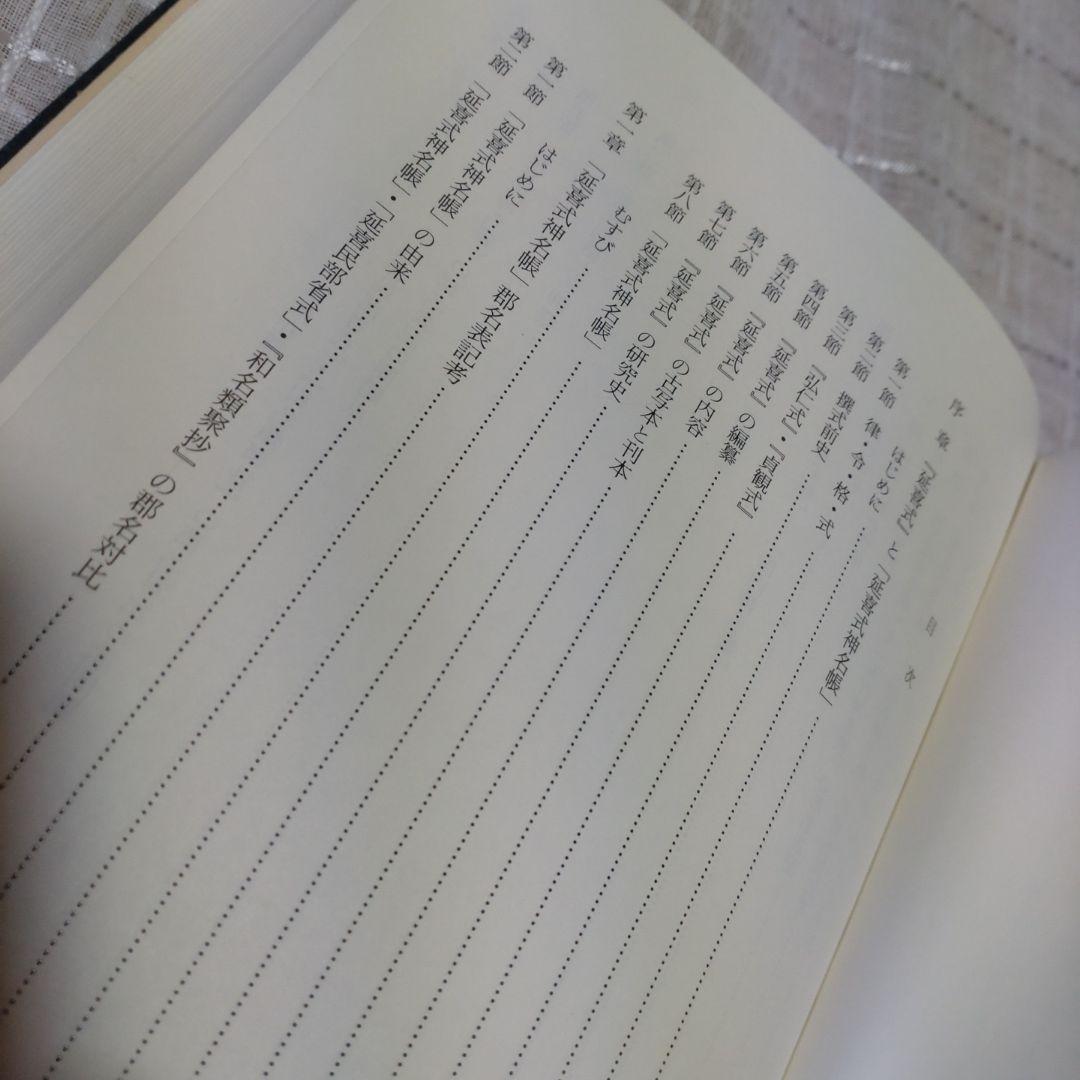 目次
序章 『延喜式』と「延喜式神名帳」
はじめに
第一節 律・令・格・式
第二節 撰式前史
第三節 『弘仁式』・『貞観式』
第四節 『延喜式』の編纂
第五節 『延喜式』の内容
第六節 『延喜式』の古写本と刊本
第七節 『延喜式』の研究史
第八節 「延喜式神名帳」
むすび
第一章 「延喜式神名帳」郡名表記考
はじめに
第一節 「延喜式神名帳」の由来
第二節 「延喜式神名帳」・「延喜民部省式」・『和名類聚抄』の郡名対比